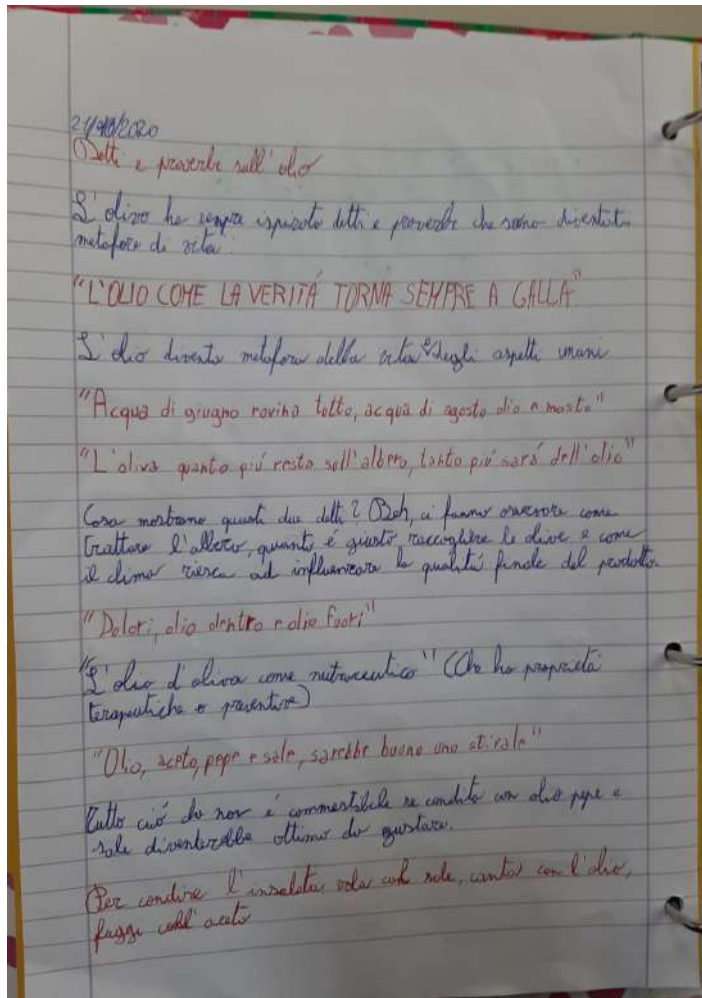 21/10/2020
Detti e proverbi sull'olio
L'olivo ha sempre ispirato detti e proverbi che sono diventati
metafore di vita.
"L'OLIO COME LA VERITÁ TORNA SEMPRE A GALLA"
L'olio diventa metafora della vita e degli aspetti umani
"Acqua di giugno rovina tutto, acqua di agosto olio e mosto"
"L'oliva quanto piú resta sull'albero, tanto piú sará dell'olio"
Cosa mostrano questi due detti? Beh, ci fanno osservare come
trattare l'albero, quanto é giusto raccogliere le olive e come
il clima riesca ad influenzare la qualitá finale del prodotto.
"Dolori, olio dentro e olio fuori"
"L'olio d'oliva come nutraceutico" (Che ha proprietá
terapeutiche e preventive)
"Olio, aceto, pepe e sale, sarebbe buono uno stivale"
Tutto ció che non é commestibile se condito con olio pepe e
sale diventerebbe ottimo da gustare.
Per condire l'insalata, vola col sale, canta con l'olio,
fuggi coll'aceto